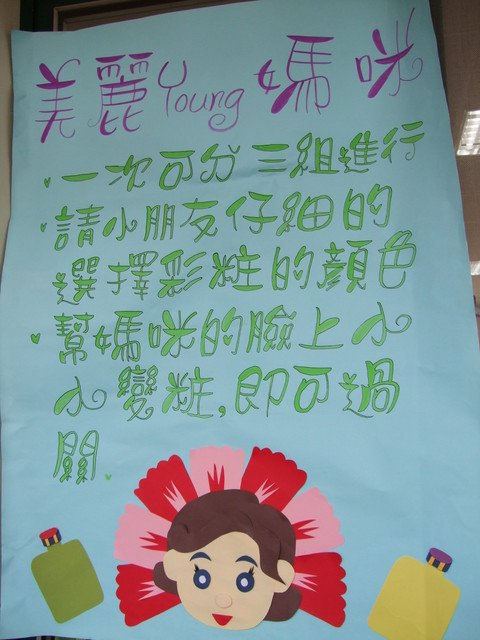 美麗Young媽咪
一次可分三組進行
請小朋友仔細的
選擇彩粧的顏色
幫媽咪的臉上小
小變粧,即可過
關.